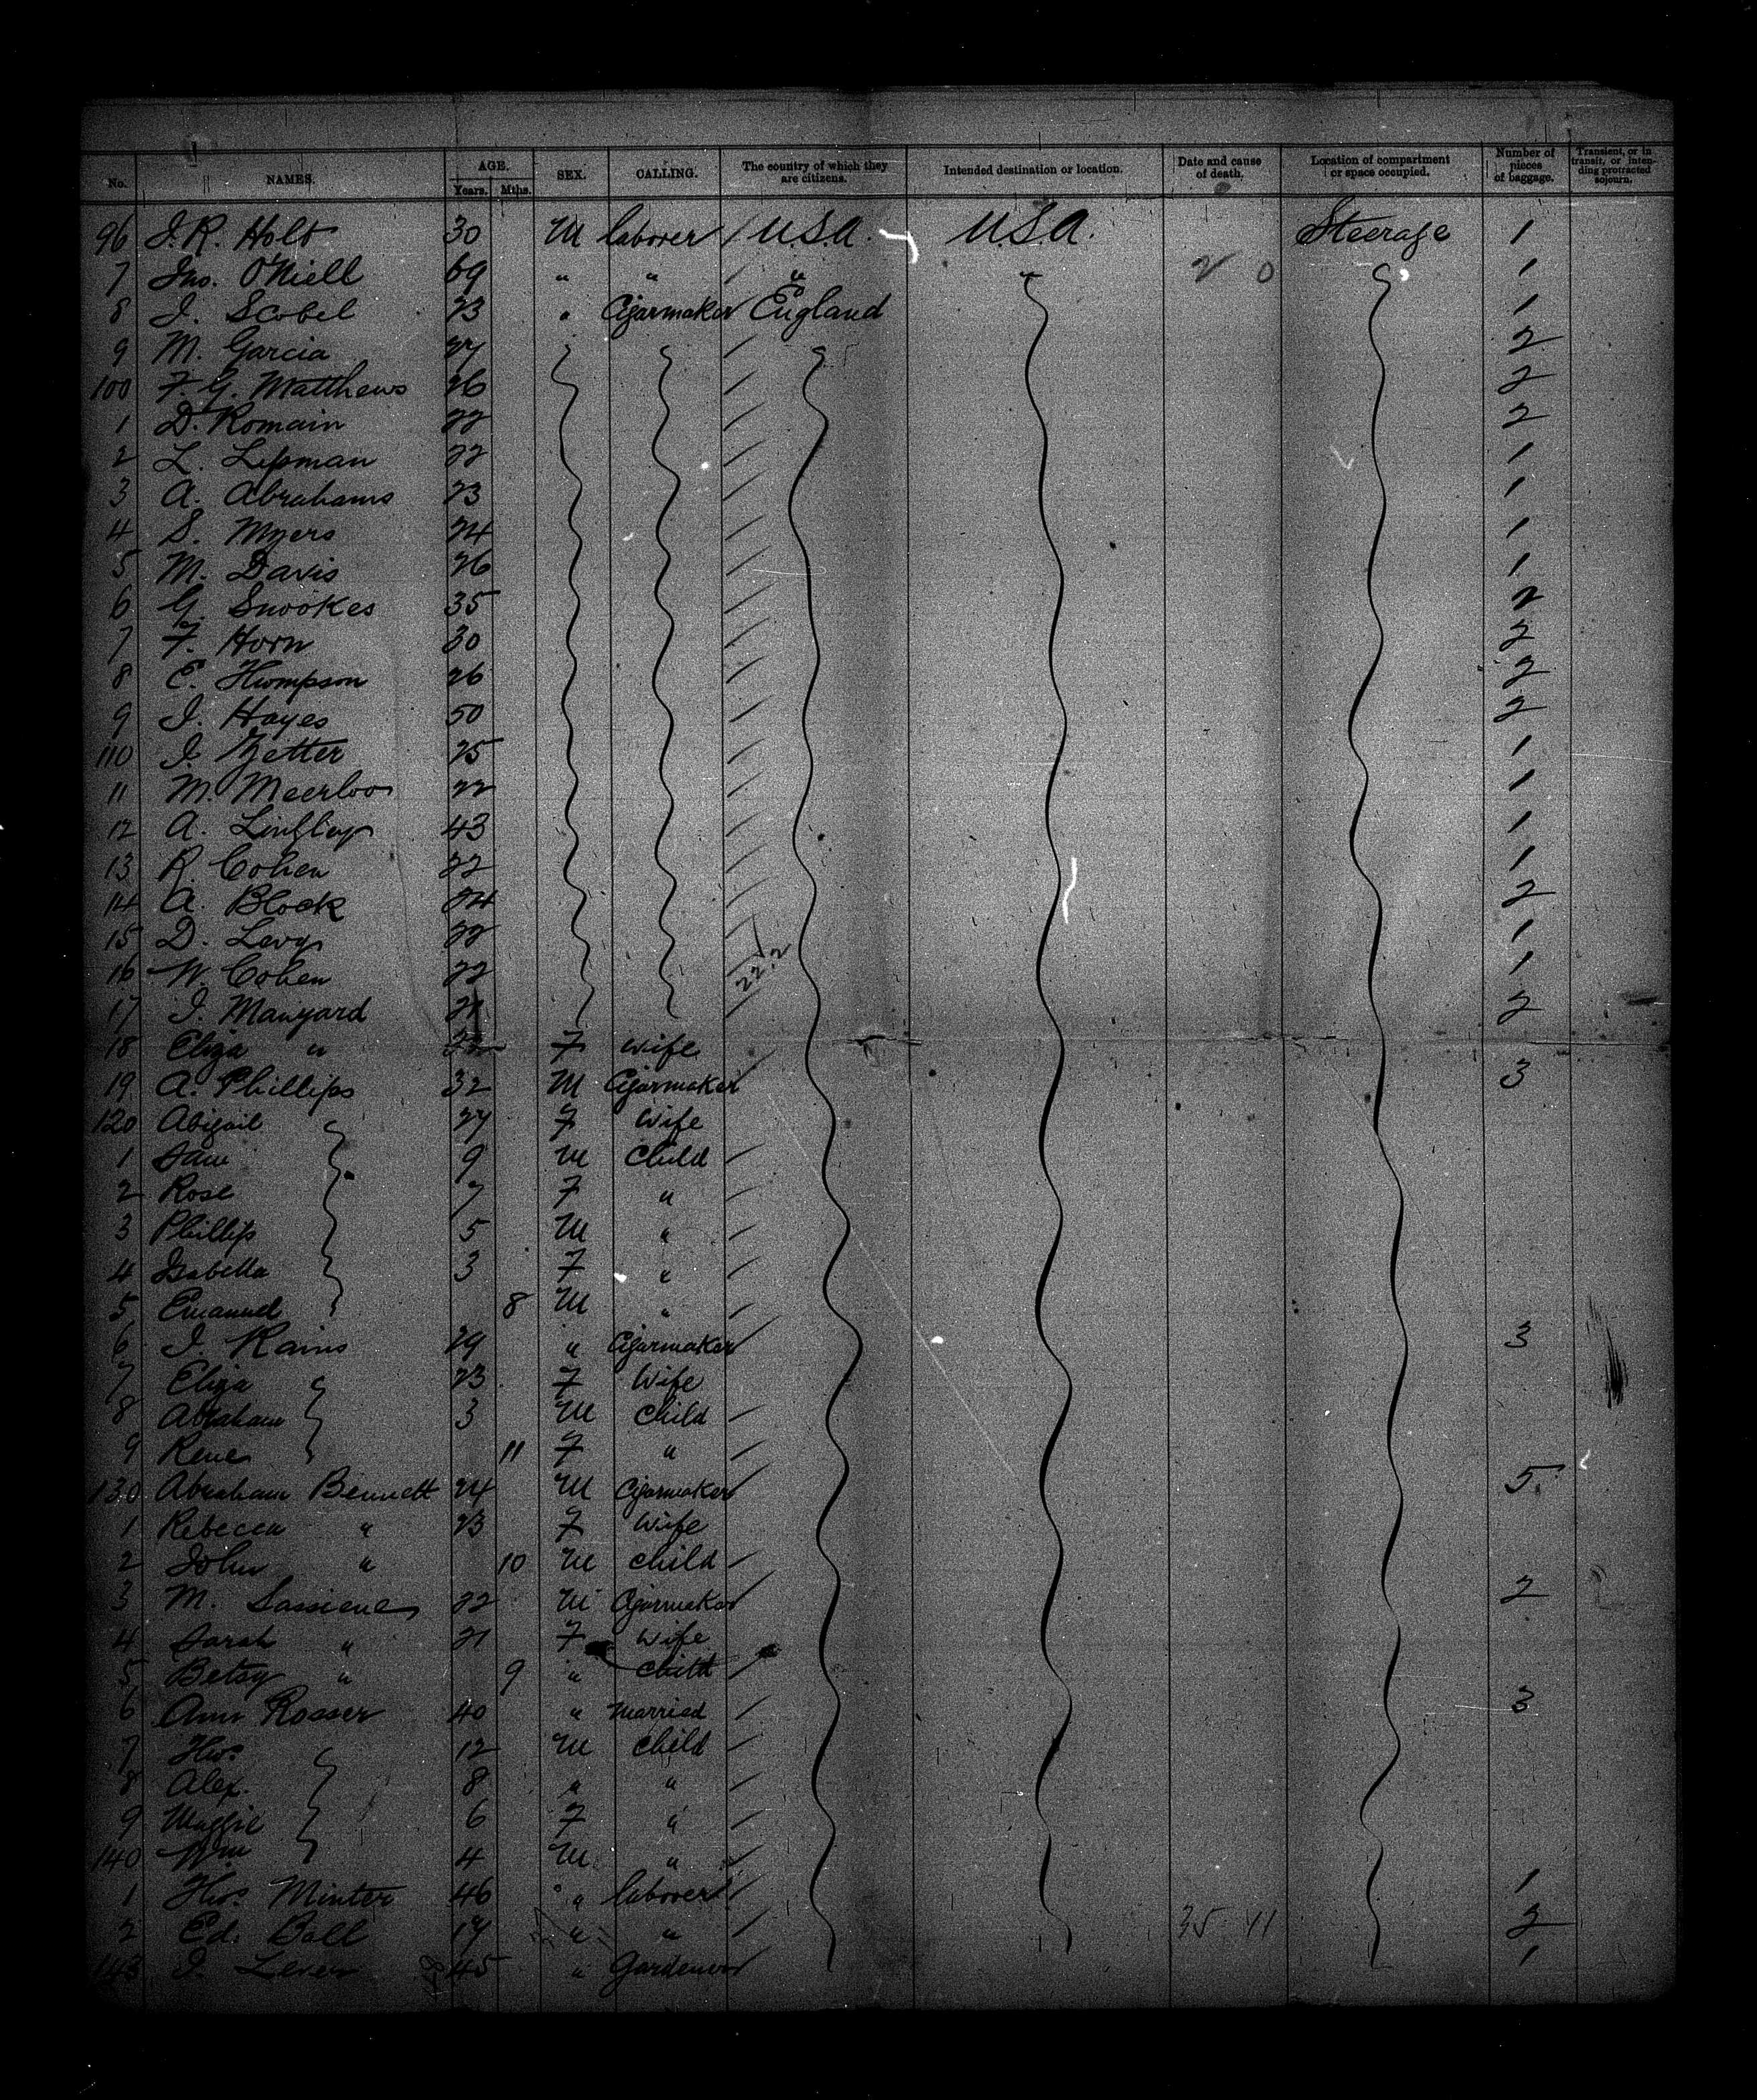 No. NAMES. AGE. Years. Mths. SEX. CALLING. The country of which they are citizens. Intended destination or location. Date and cause of death. Location of compartment or space occupied. Number of pieces of baggage. Transient, or in transit, or intending protracted sojourn.
96 J. R. Holt 30 M laborer / U.S.A. U.S.A. Steerage 1
7 Jno. O'Niell 69 " " " " 2 0 1
8 J. Scobel 23 " Cigarmaker England 1
9 M. Garcia 27 2
100 F. G. Matthews 26 2
1 D. Romain 22 2
2 L. Lipman 22 1
3 A. Abrahams 23 1
4 S. Myers 24 1
5 M. Davis 26 1
6 G. Snookes 35 2
7 F. Horn 30 2
8 C. Thompson 26 2
9 J. Hayes 50 2
110 J. Zetter 25 1
11 M. Meerloo 22 1
12 A. 43 1
13 R. Cohen 22 1
14 A. Block 24 2
15 D. Levy 22 1
16 W. Cohen 22 1
17 J. Manyard 21 2
18 Eliza " F wife
19 A. Phillips 32 M Cigarmaker 3
120 Abigail 27 F Wife
1 Sam 9 M Child
2 Rose 7 F "
3 Phillip 5 M "
4 Isabella 3 F "
5 Emanuel 8 M "
6 J. Rains 29 " Cigarmaker 3
7 Eliza 23 F Wife
8 Abraham 3 M child
9 Rene 11 F "
130 Abraham Bennett 24 M Cigarmaker 5
1 Rebecca " 23 F Wife
2 John " 10 M child
3 M. Sassiene 22 M Cigarmaker 2
4 Sarah " 21 F Wife
5 Betsy " 9 " child
6 Ann Rosser 40 " married 3
7 Thos. 12 M child
8 Alex. 8 " "
9 Maggie 6 F "
140 Wm 4 M "
1 Thos. Minter 46 " laborer 1
2 Ed. Ball 17 " " 35 11 2
143 J. 45 " Gardener 1